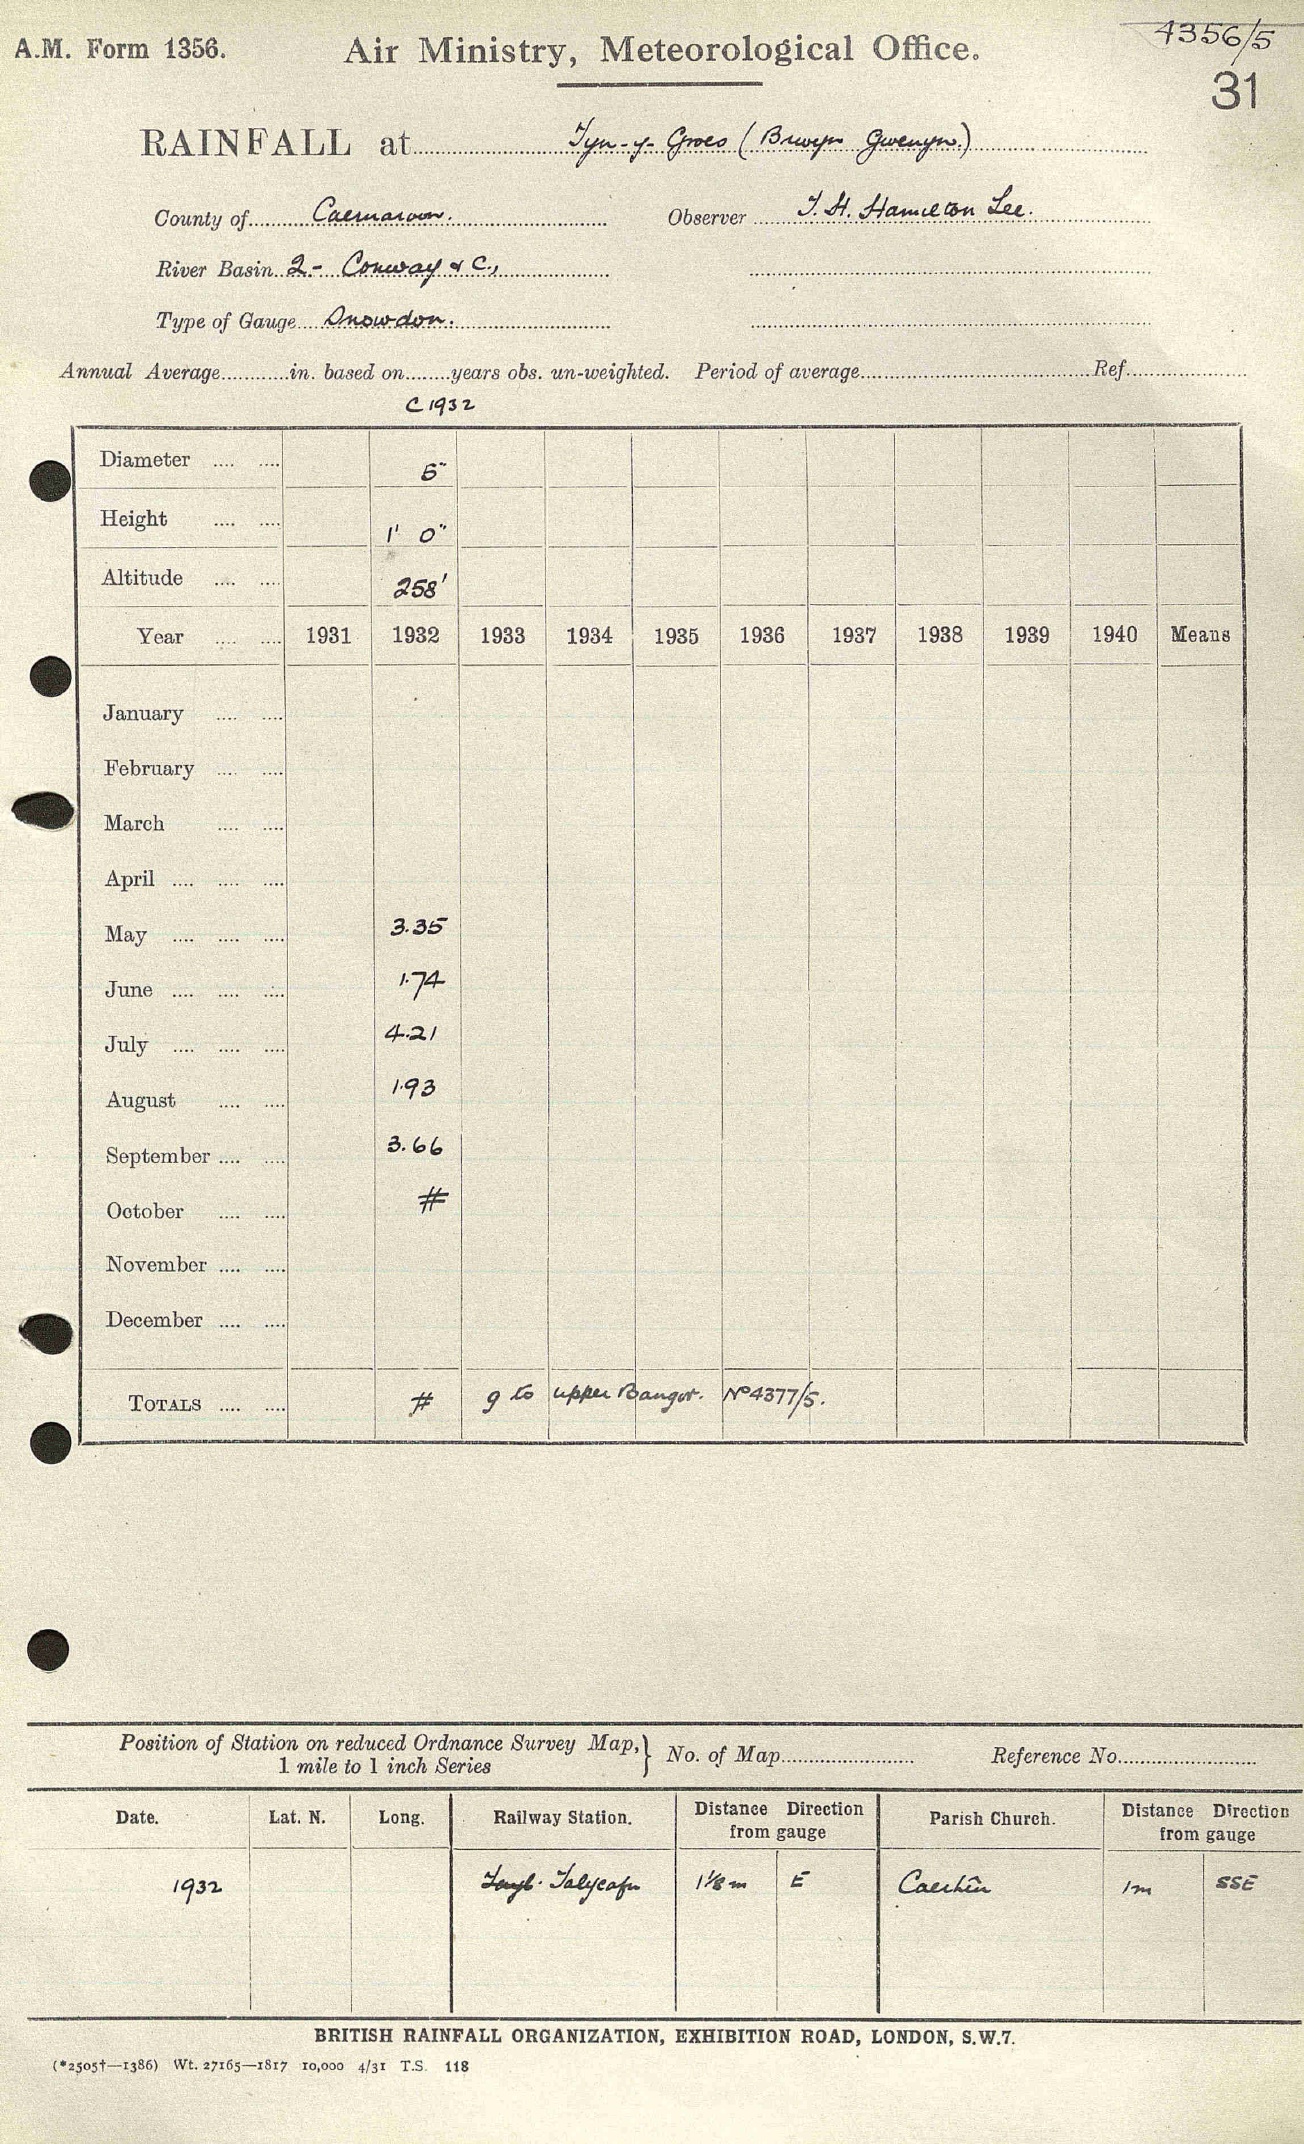 4356/5
A.M. Form 1356. Air Ministry, Meteorological Office.
31
RAINFALL at Tyn-y-Groes (Brwyn Gwenyn.)
County of Caernarvon. Observer T. H. Hamilton Lee.
River Basin 2.- Conway & C.,
Type of Gauge Snowdon.
Annual Average in. based on years obs. un-weighted. Period of average Ref
C 1932
Diameter 5"
Height 1' 0"
Altitude 258'
Year 1931 1932 1933 1934 1935 1936 1937 1938 1939 1940 Means
January
February
March
April
May 3.35
June 1.74
July 4.21
August 1.93
September 3.66
October #
November
December
TOTALS # g to upper Bangor. No 4377/5.
Position of Station on reduced Ordnance Survey Map, } No. of Map Reference No.
1 mile to 1 inch Series
Date. Lat. N. Long. Railway Station. Distance Direction Parish Church. Distance Direction
from gauge from gauge
1932 Talycafn 1⅛ m E Caerhûn 1m SSE
BRITISH RAINFALL ORGANIZATION, EXHIBITION ROAD, LONDON, S.W.7.
(*2505†—1386) Wt. 27165—1817 10,000 4/31 T.S. 118